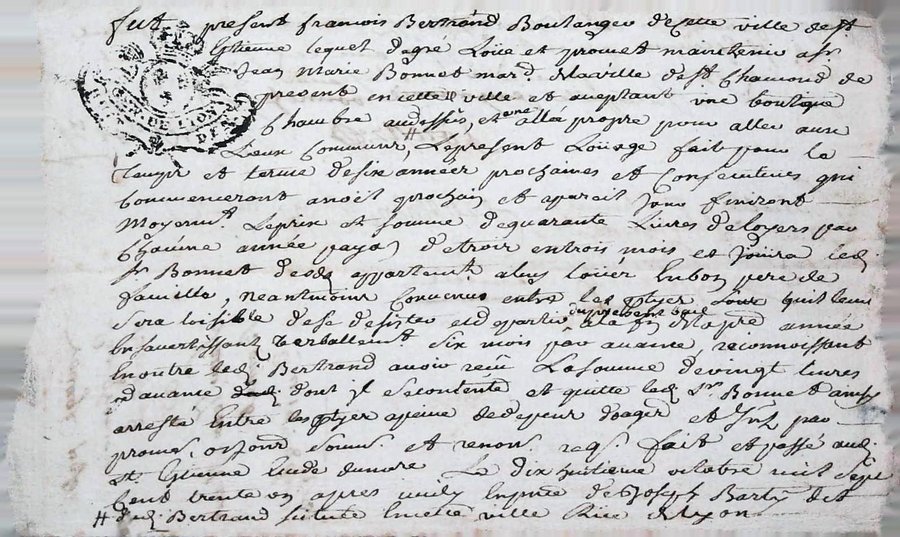 fut present francois Bertrand Boulanger de cette ville de st
Etienne lequel dagré Loüe et promet maintenir a sr
Jean Marie Bonnet mard de la ville de st Chamond de
present en cette ville et aceptant une boutique
Chambre au dessus, et une alleé propre pour aller aux
Lieux Communs, Lepresent Loüage fait pour le
temps et terme de six années prochaines et Consecutives qui
Commenceront a noël prochain et a pareil Jour finiront
Moyent. Le prix et somme de quarante Livres de loyers par
Chacune année payab de trois en trois mois et Joüira led.
sr Bonnet desd appartemt. a luy loüés En bon pere de
famille, neantmoins Convenus entre les ptyes quil leur
du present bail
sera loisible de se desister et departir a la fin de la pre année
En savertissant verballemt six mois par avance, reconnoissant
En outre led. Bertrand avoir reçu La somme de vingt livres
davance dont il se contente et quitte led. sr Bonnet ainsy
arresté Entre les ptyes a peine de depens et
promis, soums et renons fait et passé aud.
st Etienne Le dix huitieme octobre mil sept
Cent trente un apres midy En pnce de Joseph
# dud. Bertrand située En cette ville Rüe de Lyon
DE LION